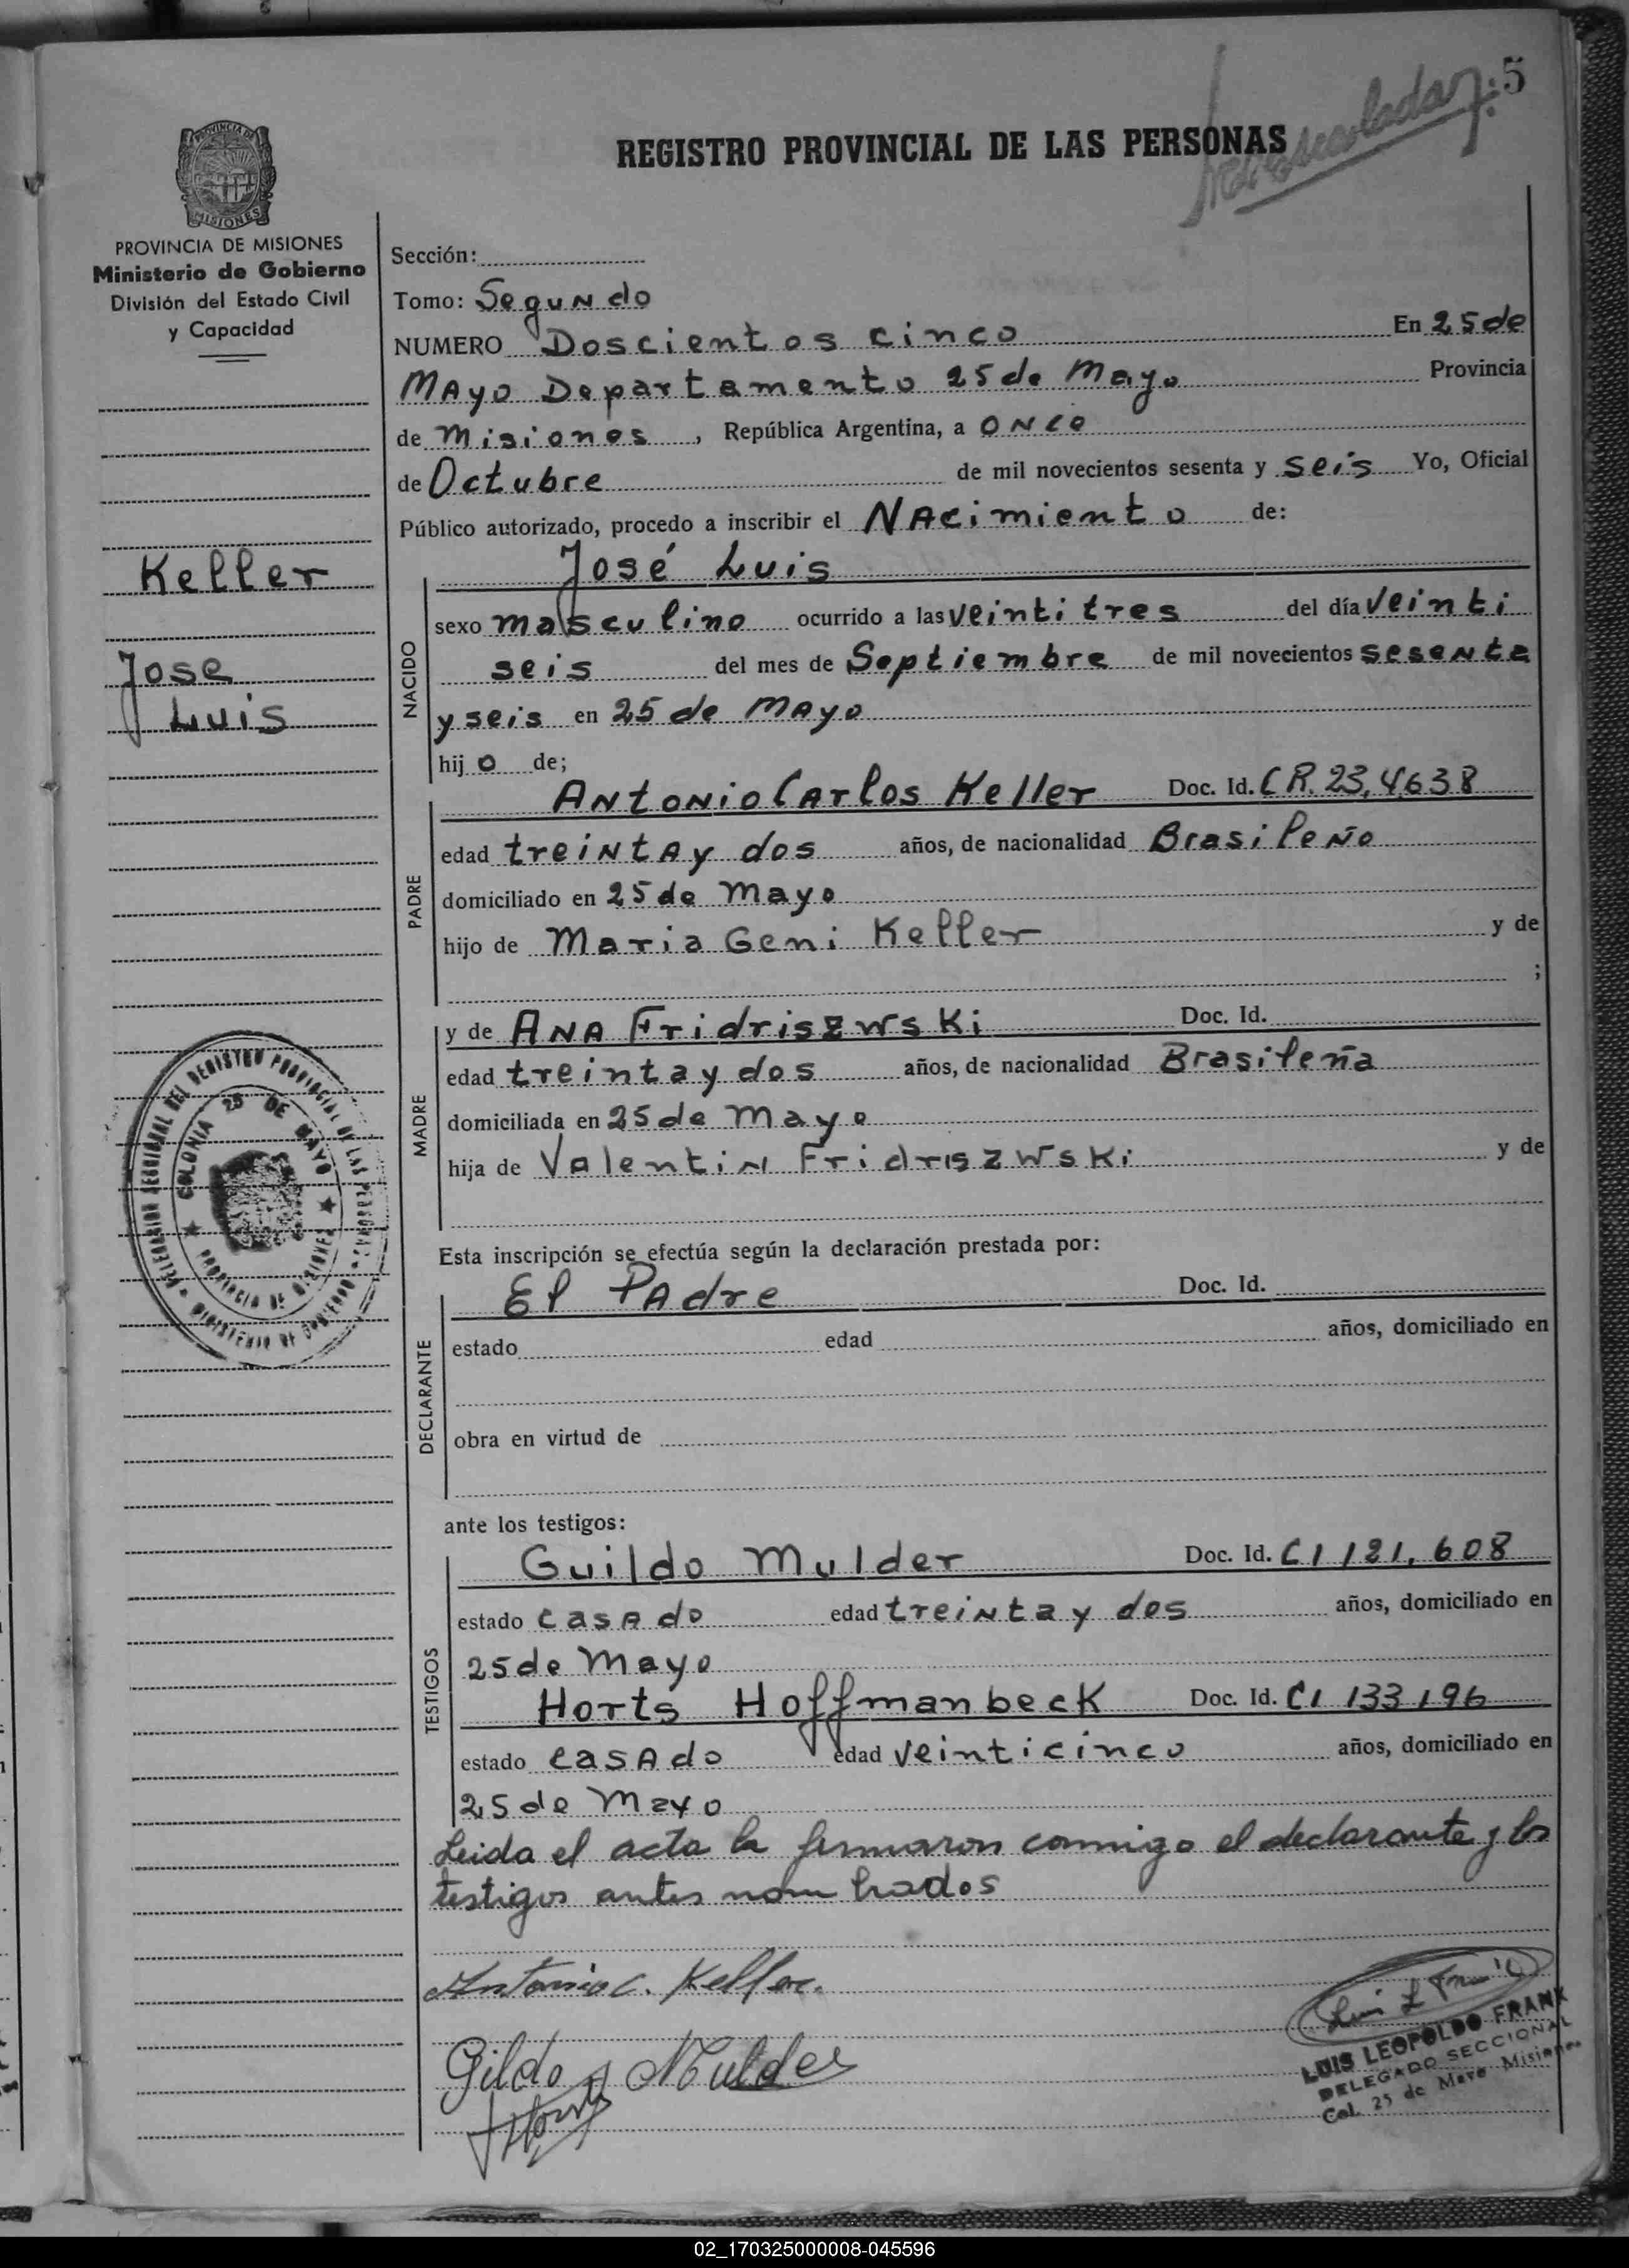 5
REGISTRO PROVINCIAL DE LAS PERSONAS
PROVINCIA DE
MISIONES
PROVINCIA DE MISIONES
Ministerio de Gobierno
División del Estado Civil
y Capacidad
Keller
Jose
Luis
DELEGACION SECCIONAL DEL REGISTRO PROVINCIAL DE LAS PERSONAS
MINISTERIO DE GOBIERNO
COLONIA 25 DE MAYO
PROVINCIA DE MISIONES
Sección:
Tomo: Segundo
NUMERO Doscientos cinco En 25 de
Mayo Departamento 25 de Mayo Provincia
de Misiones, República Argentina, a Once
de Octubre de mil novecientos sesenta y seis Yo, Oficial
Público autorizado, procedo a inscribir el Nacimiento de:
NACIDO
José Luis
sexo masculino ocurrido a las veinti tres del día veinti
seis del mes de Septiembre de mil novecientos sesenta
y seis en 25 de Mayo
hijo de;
PADRE
Antonio Carlos Keller Doc. Id. CR. 23,4638
edad treinta y dos años, de nacionalidad Brasileño
domiciliado en 25 de Mayo
hijo de Maria Geni Keller y de
;
MADRE
y de Ana Fridriszwski Doc. Id.
edad treinta y dos años, de nacionalidad Brasileña
domiciliada en 25 de Mayo
hija de Valentin Fridriszwski y de
Esta inscripción se efectúa según la declaración prestada por:
DECLARANTE
El Padre Doc. Id.
estado edad años, domiciliado en
obra en virtud de
ante los testigos:
TESTIGOS
Guildo Mulder Doc. Id. CI 121,608
estado casado edad treinta y dos años, domiciliado en
25 de Mayo
Horts Hoffmanbeck Doc. Id. CI 133196
estado casado edad veinticinco años, domiciliado en
25 de Mayo
Leida el acta la firmaron conmigo el declarante y los
testigos antes nombrados
Antonio C. Keller.
Gildo Mulder
LUIS LEOPOLDO FRANK
DELEGADO SECCIONAL
Col. 25 de Mayo Misiones
02_170325000008-045596